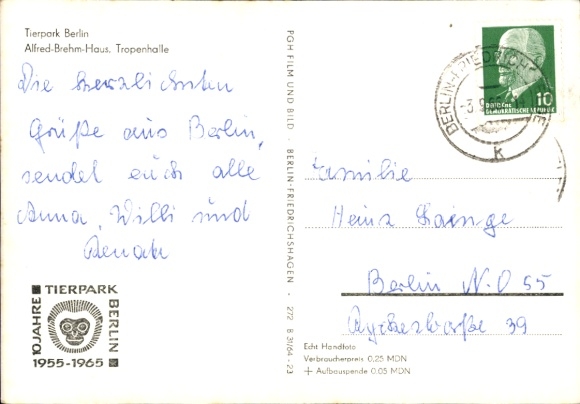 Tierpark Berlin
Alfred-Brehm-Haus, Tropenhalle
Die herzlichsten
Grüße aus Berlin,
sendet euch alle
Anna, Willi und
Renate
10 JAHRE TIERPARK BERLIN
1955-1965
PGH FILM UND BILD · BERLIN-FRIEDRICHSHAGEN · 272 B 31/64 - 23
10
DEUTSCHE
DEMOKRATISCHE REPUBLIK
BERLIN-FRIEDRICHSFELDE
k
Familie
Heinz
Berlin N.O 55
39
Echt Handfoto
Verbraucherpreis 0,25 MDN
+ Aufbauspende 0,05 MDN